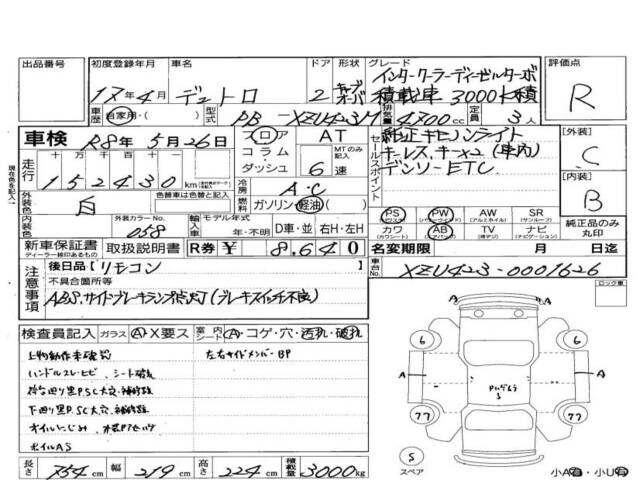 出品番号 初度登録年月 車名 ドア 形状 グレード 評価点
17年4月 デュトロ 2 キャブオーバ インタークーラーディーゼルターボ
積載車 3000K積
R
車歴 自家用・( ) 型式 PB-XZU423M 排気量 4700cc 定員 3人
車検 R8年5月26日 フロア AT
コラム・ダッシュ MTのみ記入 6速
セールスポイント 純正キセノンライト
キーレス、キー×2(車内)
デンソーETC
[外装] C
[内装] B
走行 十万千百十一
152430 km
冷房 A・C
燃料 ガソリン 軽油・( )
外装色 白 色替車は色替前の色を記入
外装カラーNo. 058 輸入車 モデル年式 年・不明 D車・並 右H・左H
PS PW AW SR
カワ AB TV ナビ
純正品のみ丸印
新車保証書 取扱説明書 R券 ¥ 8,640
ディーラー捺印あるもの
名変期限 月 日迄
注意事項 後日品【リモコン
車台No. XZU423-0001626
不具合箇所等
ABS、サイドブレーキランプ点灯(ブレーキスイッチ不良)
ロック車
検査員記入 ガラス A・X要ス 室内シート A・コゲ・穴・汚れ・破れ
上物動作未確認 左右サイドメンバーBP
ハンドルスレ・ヒビ、シート破れ
下回り黒P.SC大穴・補修跡
オイルにじみ
ホイルAS
A
6 6
A A
77 77
S
スペア
小A有・小U有
長さ 754cm 幅 219cm 高さ 224cm 積載量 3000kg
現在色を記入